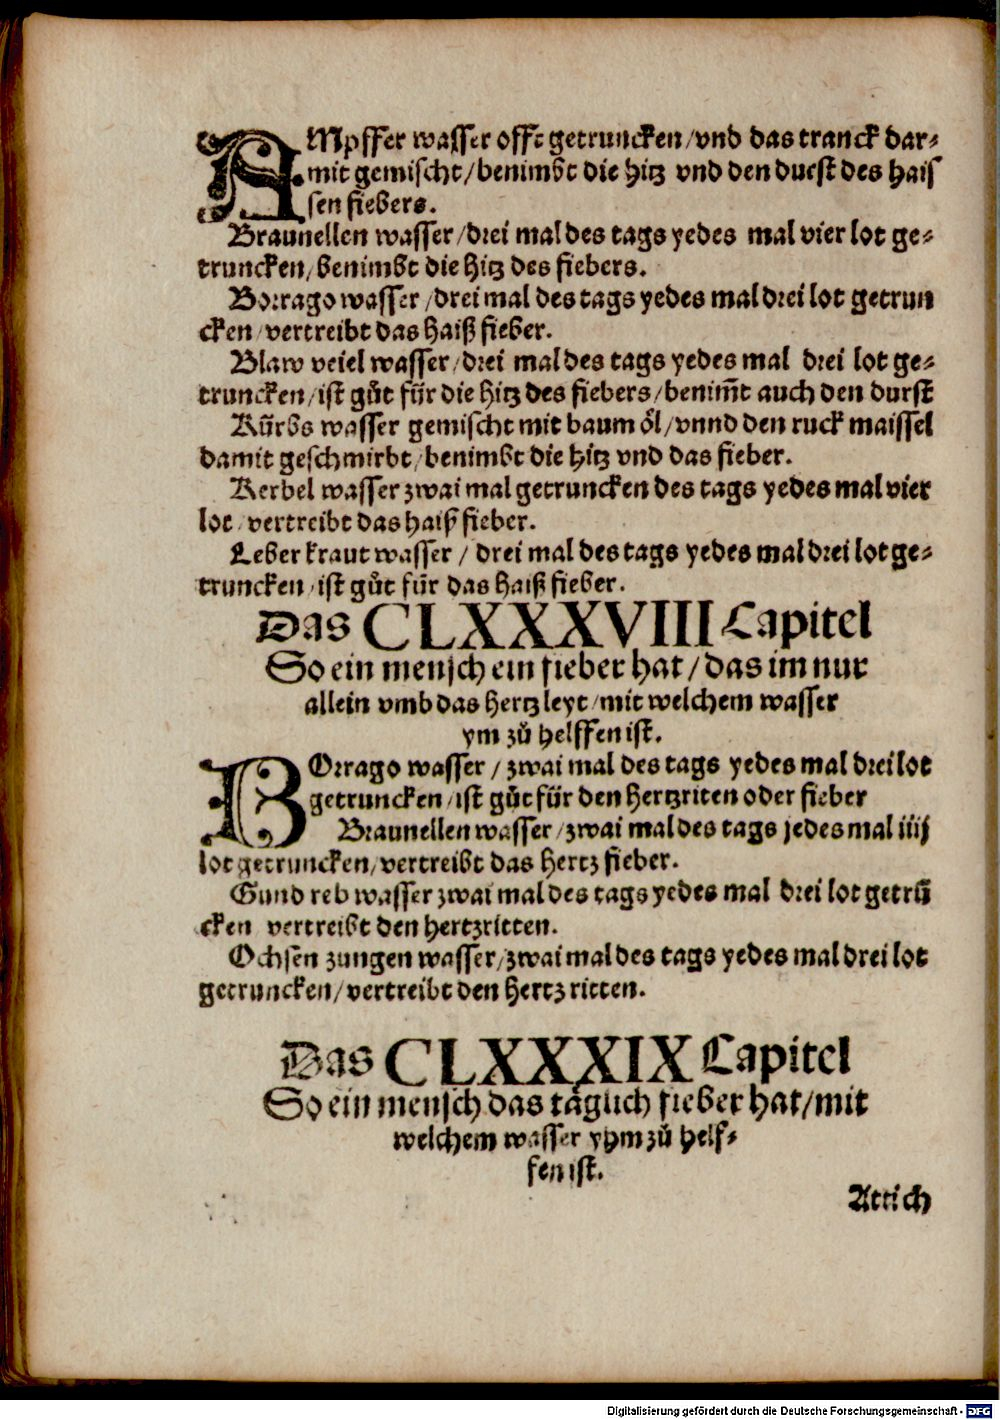 AMpffer wasser offt getruncken/vnd das tranck dar⸗
mit gemischt/benimbt die hitz vnd den durst des hais
sen fiebers.
Braunellen wasser/drei mal des tags yedes mal vier lot ge⸗
truncken/benimbt die hitz des fiebers.
Borrago wasser/drei mal des tags yedes mal drei lot getrun
cken/vertreibt das haiß fieber.
Blaw veiel wasser/drei mal des tags yedes mal drei lot ge⸗
truncken/ist gůt für die hitz des fiebers/benim̃t auch den durst
Kürbs wasser gemischt mit baum öl/vnnd den ruck maissel
damit geschmirbt/benimbt die hitz vnd das fieber.
Kerbel wasser zwai mal getruncken des tags yedes mal vier
lot/vertreibt das haiß fieber.
Leber kraut wasser/drei mal des tags yedes mal drei lot ge⸗
truncken/ist gůt für das haiß fieber.
Das CLXXXVIII Capitel
So ein mensch ein fieber hat/das im nur
allein vmb das hertz leyt/mit welchem wasser
ym zů helffen ist.
BOrrago wasser/zwai mal des tags yedes mal drei lot
getruncken/ist gůt für den hertzriten oder fieber
Braunellen wasser/zwai mal des tags jedes mal iiij
lot getruncken/vertreibt das hertz fieber.
Gund reb wasser zwai mal des tags yedes mal drei lot getrũ
cken vertreibt den hertzritten.
Ochsen zungen wasser/zwai mal des tags yedes mal drei lot
getruncken/vertreibt den hertz ritten.
Das CLXXXIX Capitel
So ein mensch das täglich fieber hat/mit
welchem wasser yhm zů helf⸗
fen ist.
Attich
Digitalisierung gefördert durch die Deutsche Forschungsgemeinschaft - DFG